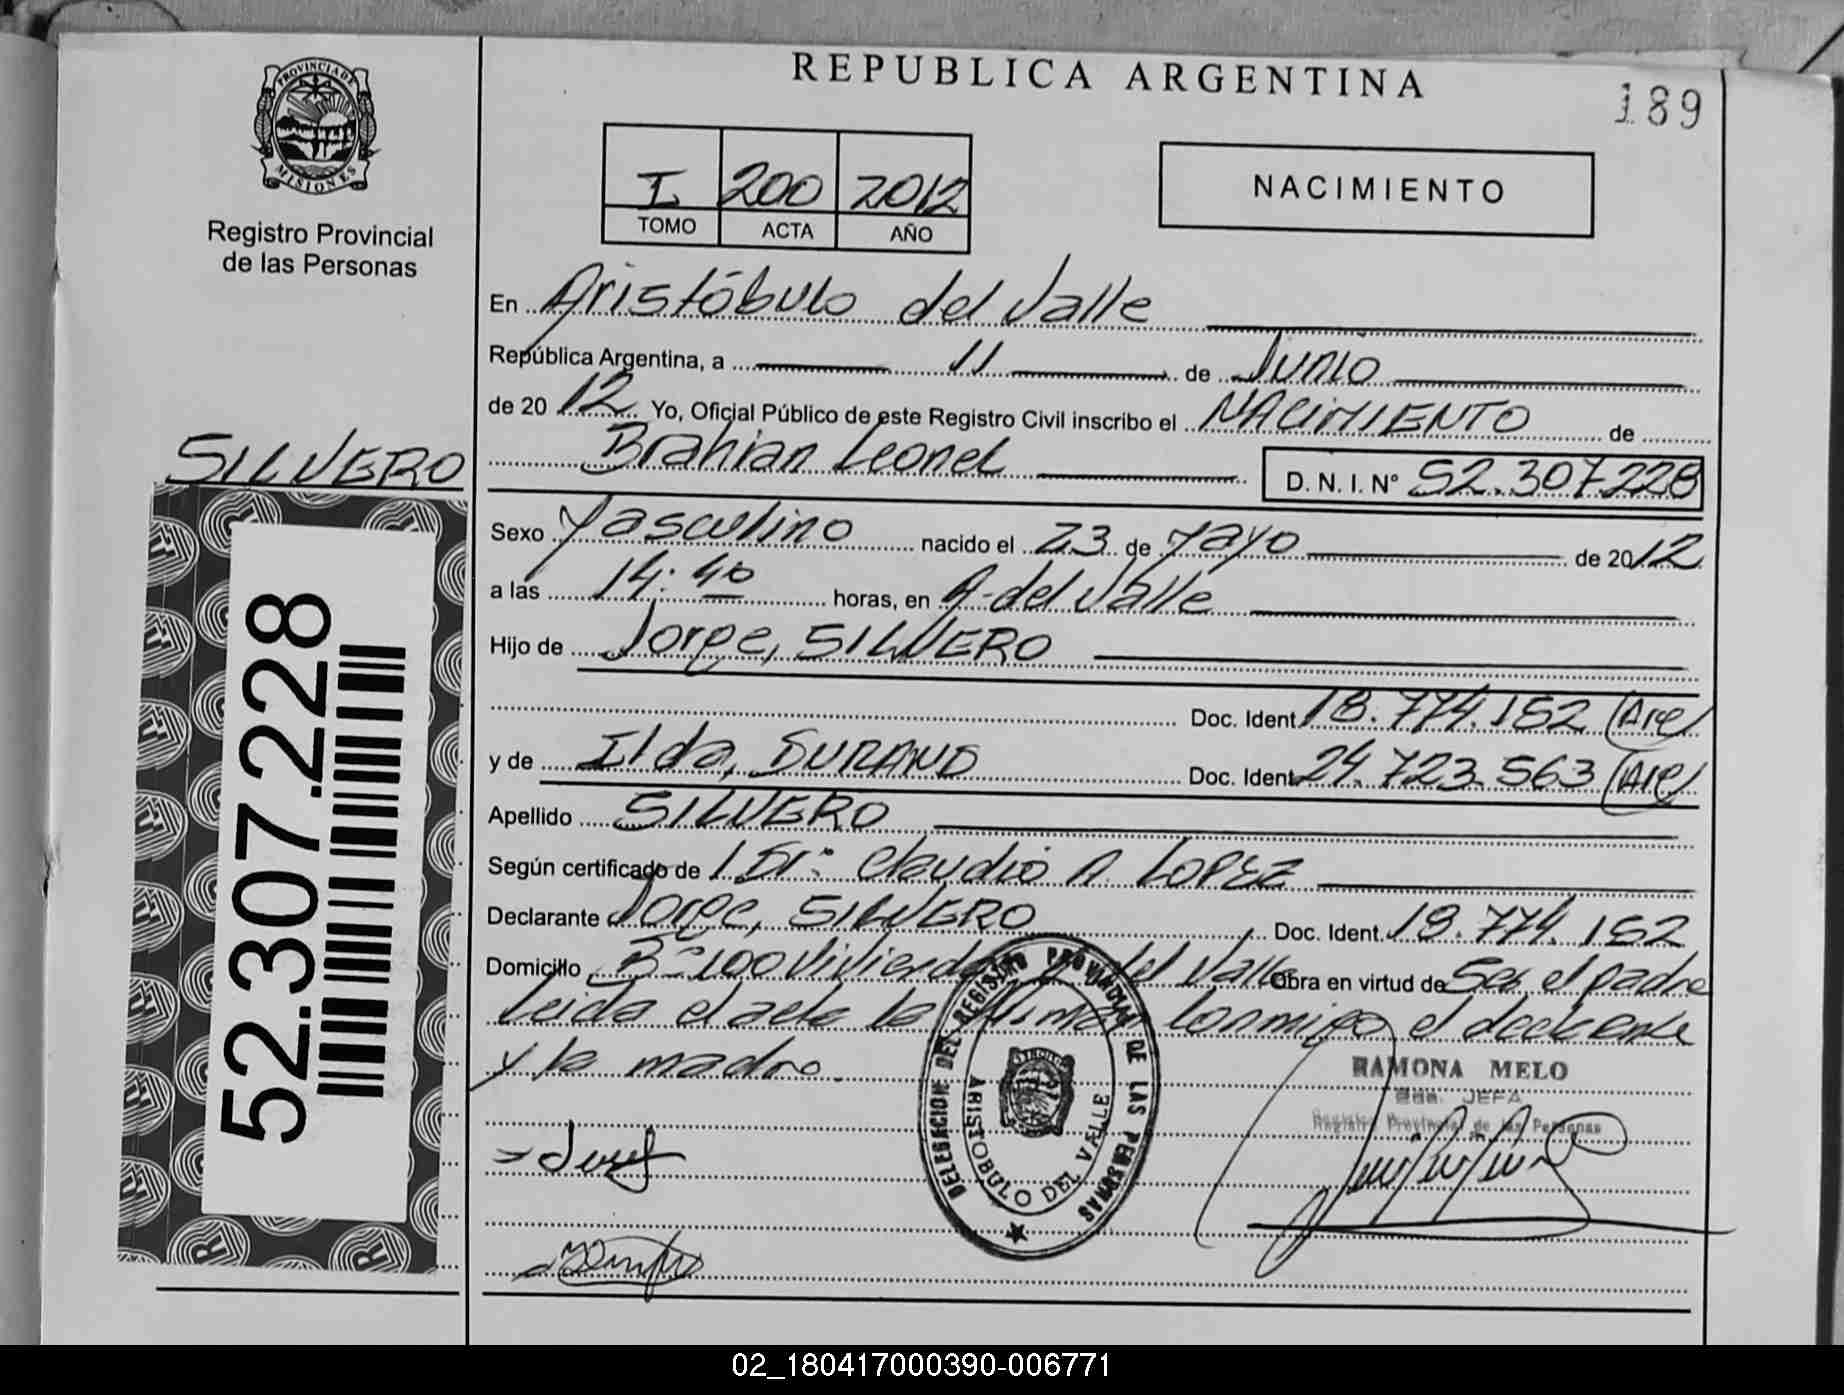 REPUBLICA ARGENTINA
189
PROVINCIA DE MISIONES
Registro Provincial
de las Personas
I 200 2012
TOMO ACTA AÑO
NACIMIENTO
En Aristóbulo del Valle
República Argentina, a 11 de Junio
de 2012 Yo, Oficial Público de este Registro Civil inscribo el NACIMIENTO de
Brahian Leonel D. N. I. Nº 52.307.228
SILVERO
52.307.228
Sexo Masculino nacido el 23 de Mayo de 2012
a las 14:40 horas, en A. del Valle
Hijo de Jorge, SILVERO
Doc. Ident. 18.774.152 (Arg)
y de Ilda, DURAND Doc. Ident. 24.723.563 (Arg)
Apellido SILVERO
Según certificado de Claudio A. LOPEZ
Declarante Jorge, SILVERO Doc. Ident. 18.774.152
Domicilio Bº 100 Viviendas A. del Valle Obra en virtud de Ser el padre
Leida el acta la firman conmigo el declarante
y la madre.
DELEGACION DEL REGISTRO PROVINCIAL DE LAS PERSONAS
ARISTOBULO DEL VALLE
RAMONA MELO
JEFA
Registro Provincial de las Personas
02_180417000390-006771